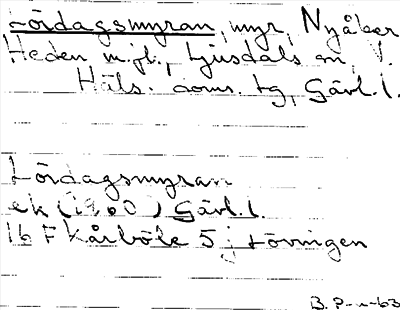 Lördagsmyran, myr, Nyåker
Heden m.fl., Ljusdals sn, V.
Häls. doms. tg, Gävl. l.
Lördagsmyran
ek (1960) Gävl. l.
16 F Kårböle 5 j Lövingen
B. P-n-63